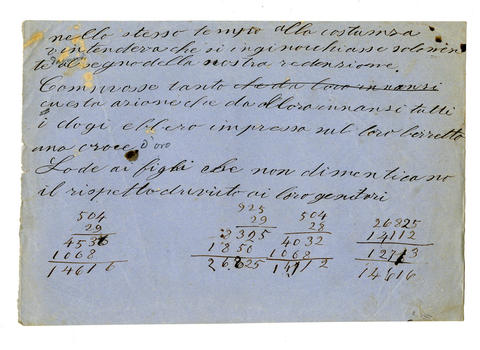 nello stesso tempo alla costumza
s'intendeva che si inginocchiasse solamen
te al segno della nostra redenzione.
Commosse tanto che da loro innanzi
questa azione che da allora innansi tutti
i dogi ebbero impressa sul loro berretto
una croce d'oro
Lode ai fighi che non dimenticano
il rispetto dovuto ai loro genitori
504 925 504 26825
29 29 28 14112
4536 8325 4032 12713
1008 1850 1008 14616
14616 26825 14112